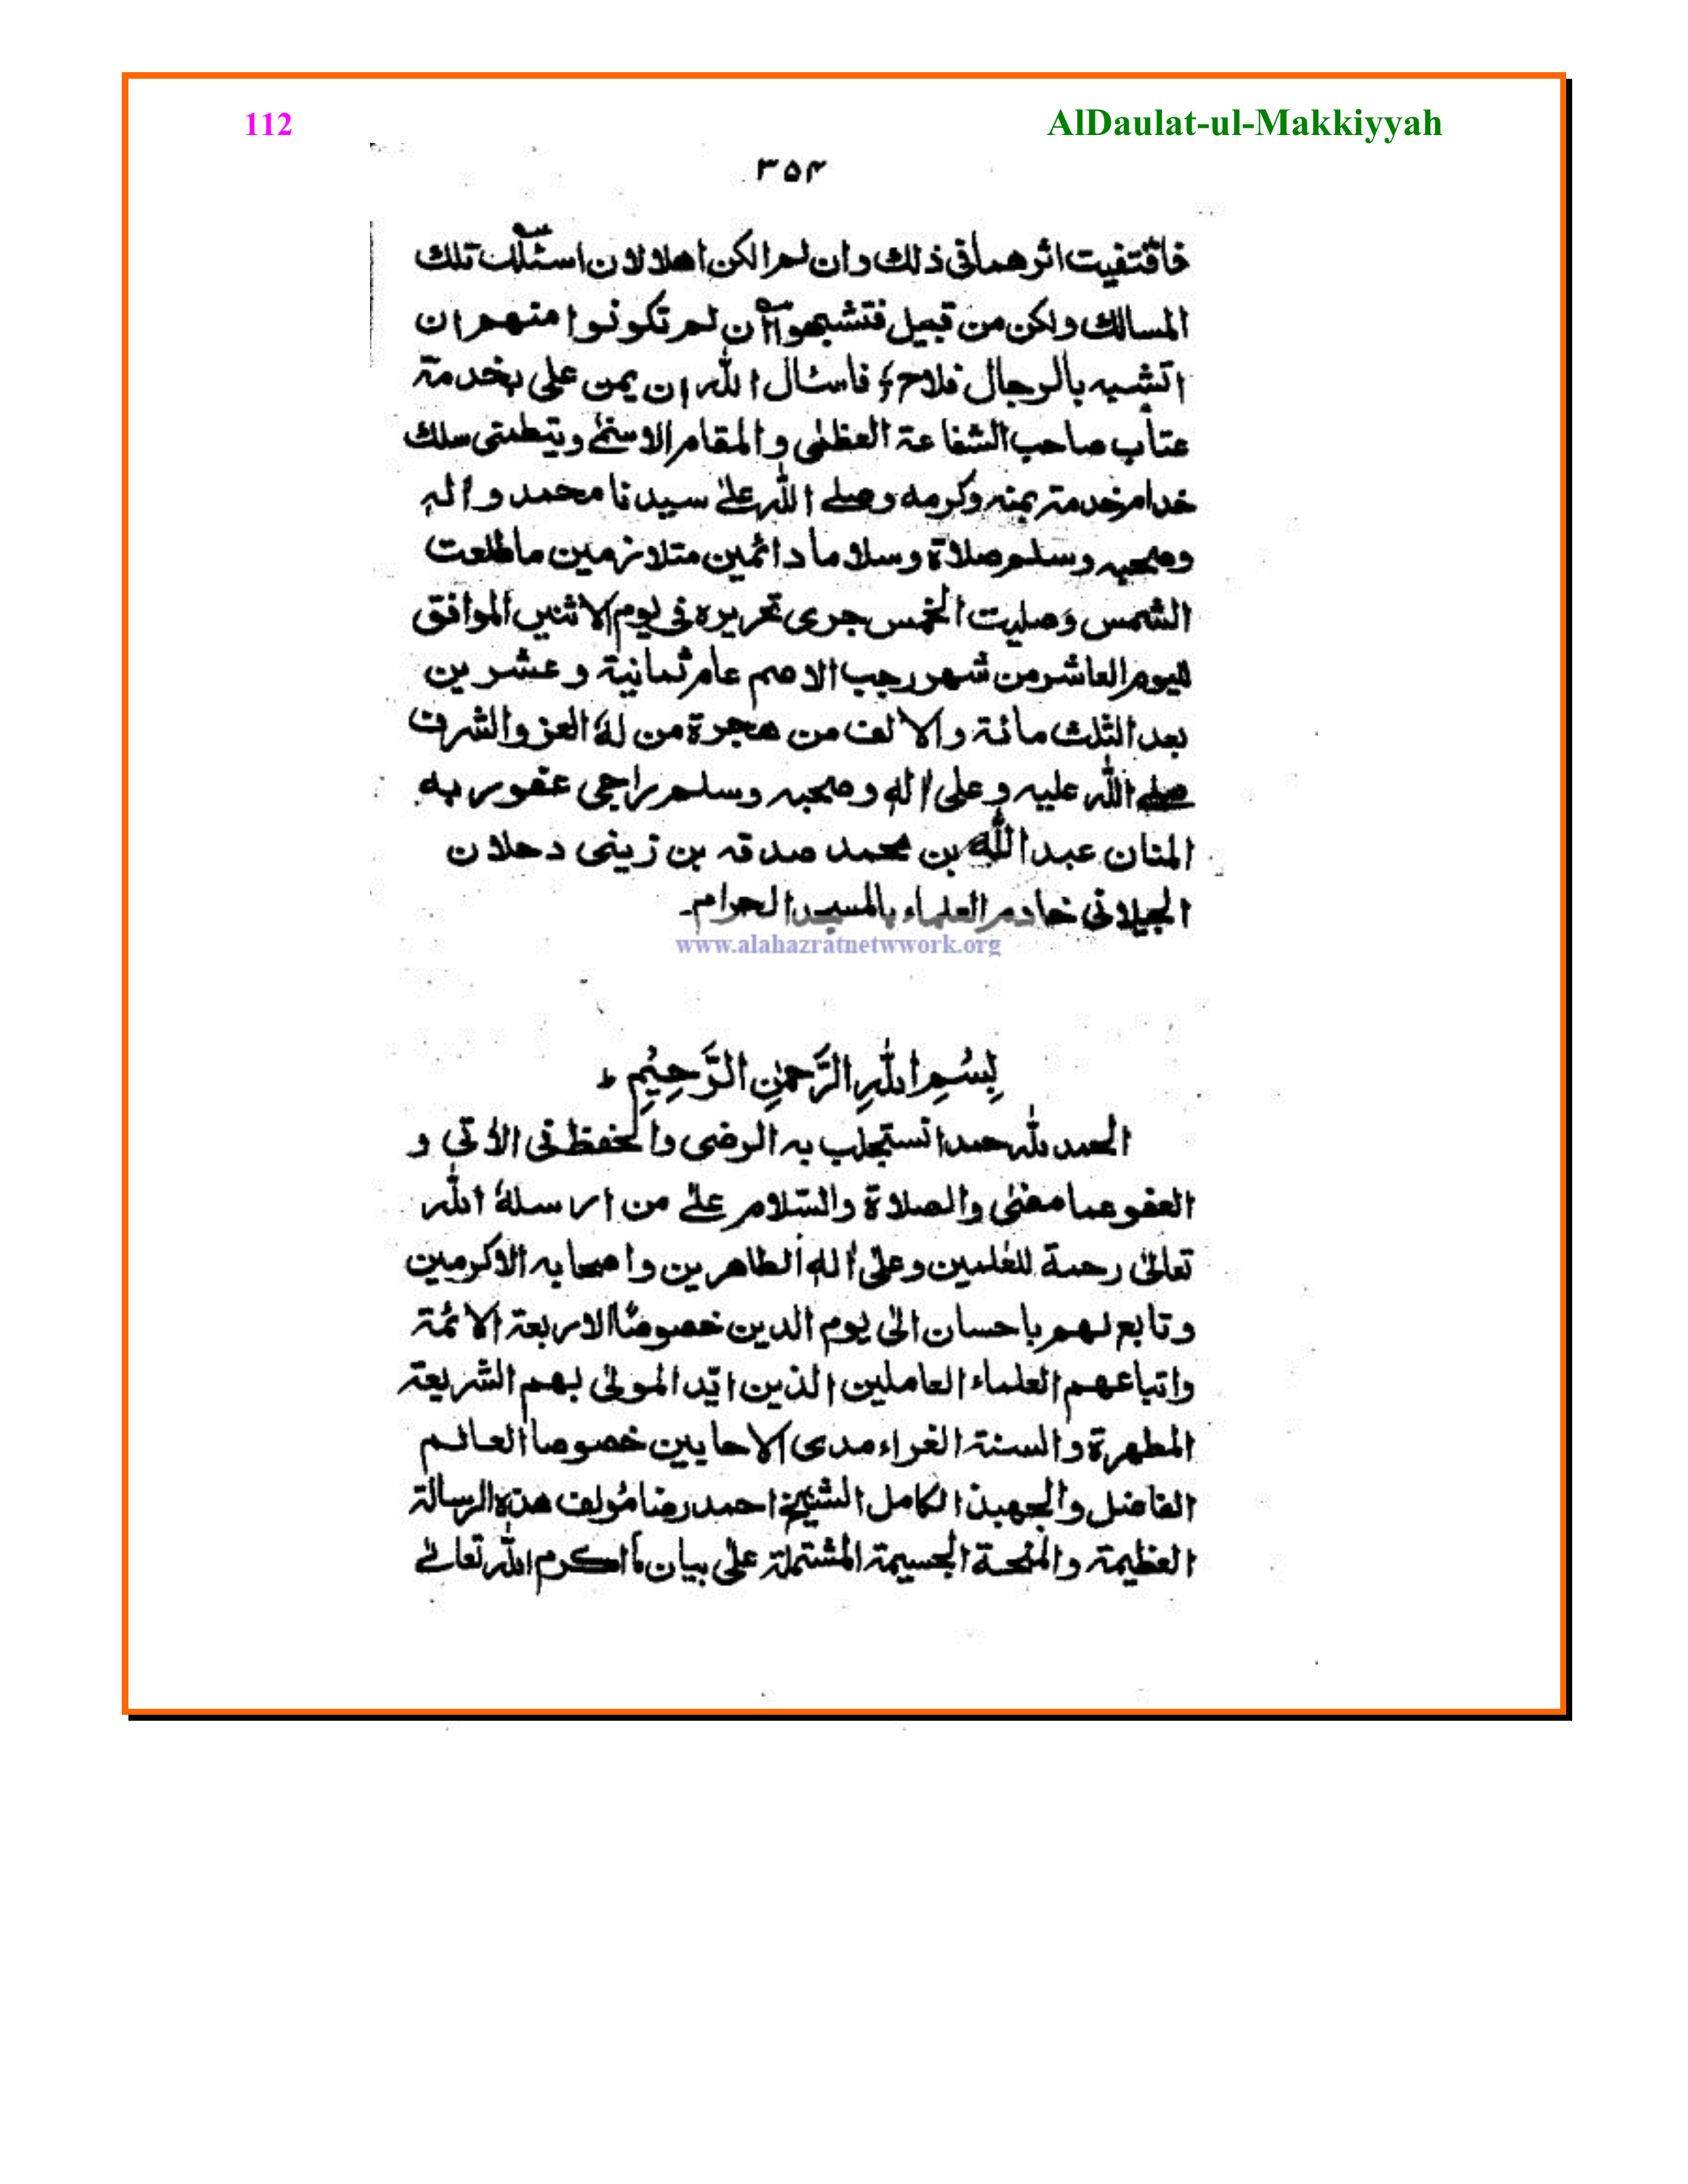 112 AlDaulat-ul-Makkiyyah
۳۵۴
فاقتفيت اثرهما فى ذلك وان لم اكن اهلا لان اسئلك تلك
المسالك ولكن من قبيل فتشبهوا ان لم تكونوا منهم ان
اتشبه بالرجال فلاح ؛ فاسئال الله ان يمن على بخدمة
عتاب صاحب الشفاعة العظمٰى والمقام الاسنٰے وينظمنى سلك
خدام خدمته بمنه وكرمه وصلے الله علےٰ سيدنا محمد واٰله
وصحبه وسلم صلاة وسلاما دائمين متلازمين ما طلعت
الشمس وصليت الخمس جرى تحريره فى يوم الاثنين الموافق
لليوم العاشر من شهر رجب الاصم عام ثمانية وعشرين
بعد الثلث مائة والالف من هجرة من لهٗ العز والشرف
صلے الله عليه وعلى اٰله وصحبه وسلم راجى عفو ربه
المنان عبد الله بن محمد صدقه بن زينى دحلان
الجيلانى خادم العلماء بالمسجد الحرام۔
www.alahazratnetwwork.org
بِسْمِ اللهِ الرَّحمٰنِ الرَّحِيْمِ ط
الحمد لله حمدا نستجلب به الرضى والحفظ فى الاٰتى و
العفو عما مضٰى والصلاة والسّلام علےٰ من ارسلهٗ الله
تعالىٰ رحمة للعٰلمين وعلىٰ اٰله الطاهرين واصحابه الاكرمين
وتابع لهم باحسان الىٰ يوم الدين خصوصًا الاربعة الائمة
واتباعهم العلماء العاملين الذين ايّد المولىٰ بهم الشّريعة
المطهرة والسنة الغراء مدى الاحايين خصوصا العالم
الفاضل والجهبذ الكامل الشيخ احمد رضا مُولف هذه الرسالة
العظيمة والمنحة الجسيمة المشتملة علىٰ بيان ما اكرم الله تعالےٰ